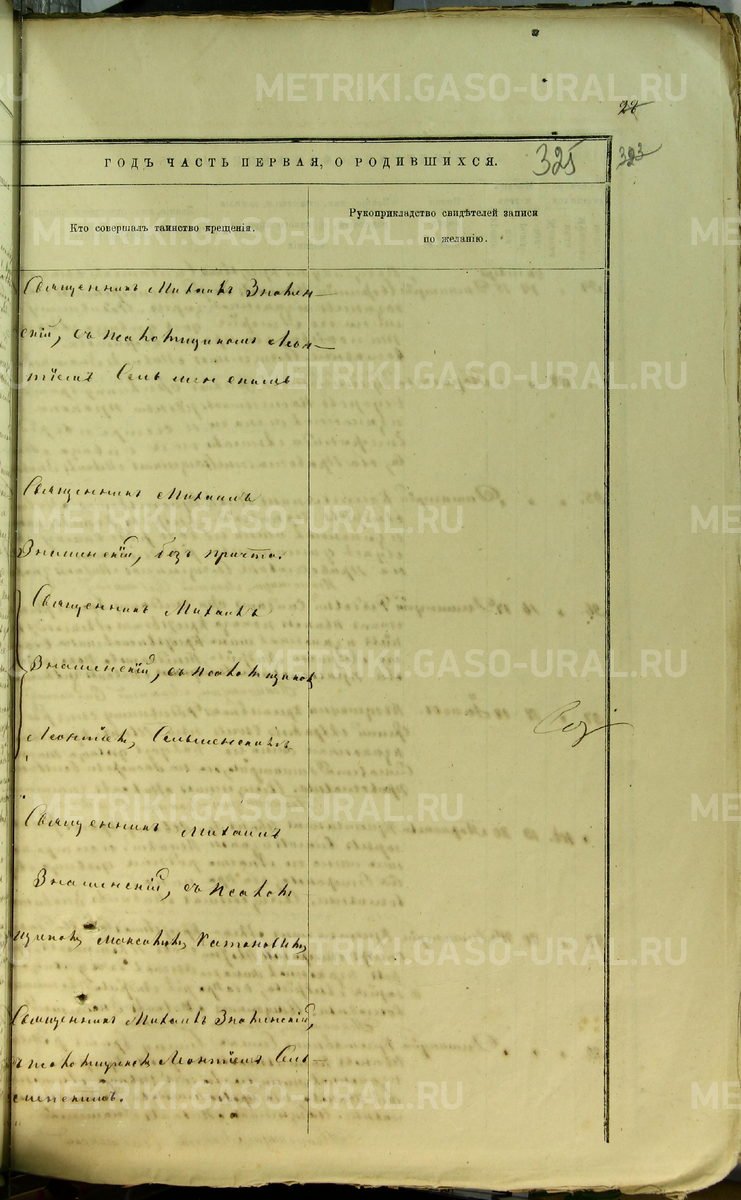 METRIKI.GASO-URAL.RU
28
ГОДЪ ЧАСТЬ ПЕРВАЯ, О РОДИВШИХСЯ.
325
323
Кто совершалъ таинство крещенія.
Рукоприкладство свидѣтелей записи
по желанію.
Священникъ Михаилъ Знамен-
скій, съ псаломщикомъ Леон-
тіемъ Сельменскимъ
Священникъ Михаилъ
Знаменскій, безъ причта.
Священникъ Михаилъ
Знаменскій, съ псаломщиком
Леонтіем Сельменскимъ
Священникъ Михаилъ
Знаменскій, съ псалом
щиком Максимом
Священникъ Михаилъ Знаменскій,
съ псаломщиком Леонтіемъ Сель
менскимъ.